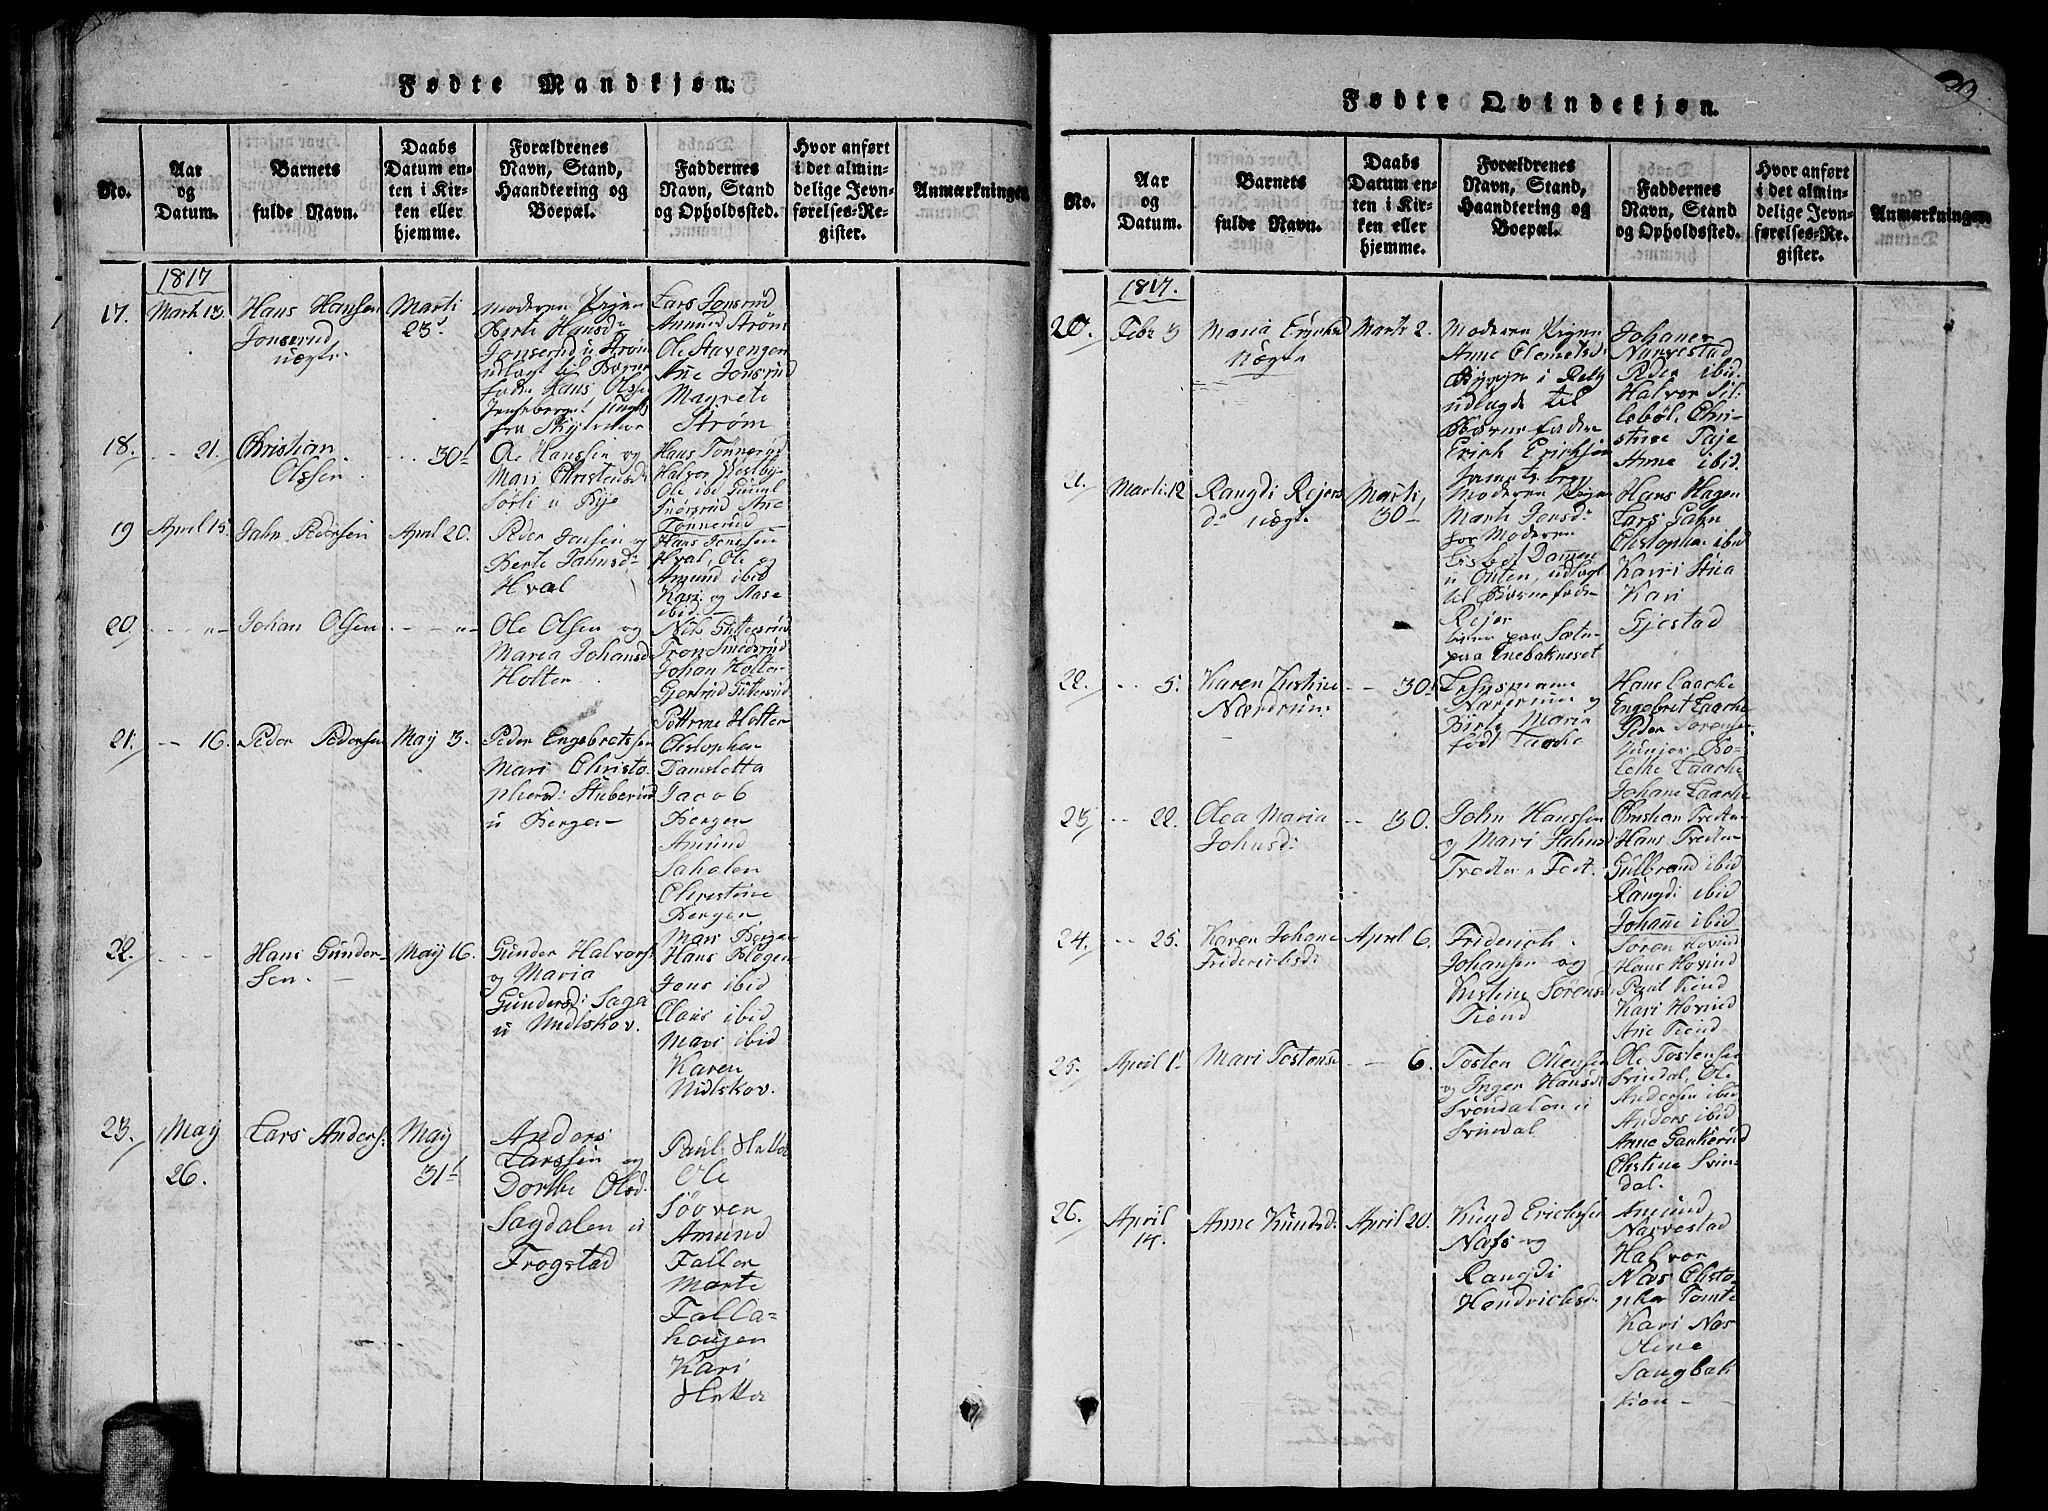 Fødte Mandkjøn.
No.
Aar
og
Datum.
Barnets
fulde Navn.
Daabs
Datum en-
ten i Kir-
ken eller
hjemme.
Forældrenes
Navn, Stand,
Haandtering og
Boepæl.
Faddernes
Navn, Stand
og Opholdssted.
Hvor anført
i det almin-
delige Jevn-
førelses-Re-
gister.
Anmærkninger
1817
17.
Marti 13
Hans Hansen
Jonserud
uægte
Marti
23'
moderen Pigen
Berte Hansd:
Jonserud u Strøm
udlagt til Barne
fader Hans Olsen
fra
Lars Jonsrud
Amund Strøm
Ole Stavengen
Ane Jonsrud
Magrete
Strøm
18.
-- 21.
Christian
Olssen
--- 30'
Ole Hanssen og
Mari Christensd:
Sørli u Bye
Hans Tønnerud
Halvor Østby
Ole ibid
Ane
Tønnerud
19
April 15.
Jahn Pedersen
April 20.
Peder Jensen og
Berte Jahnsd:
Hval
Hans Jenssen
Hval, Ole og
Amund ibid
Kari og Aase
ibid.
20.
Johan Olsen
Ole Olsen og
Maria Johansd
Holter
Nils Guttersrud
Tron Smedsrud
Johan Holter
Gjertrud Guttersrud
Holter
21.
-- 16.
Peder Pedersen
May 3.
Peder Engebretssen
Mari Christo
phersd: Stuberud
u Bergen
Christopher
Damsletta
Jacob
Bergen
Amund
Saholen
Christine
Bergen
Mari Bergen
22.
Hans Gunder-
sen.
May 16.
Gunder Halvors:
og Maria
Gundersd: Saga
u Nidlskov.
Hans Blegen
Jens ibid
Claus ibid
Mari ibid
Karen
Nidlskov.
23.
May
26.
Lars Anders:
May
31'
Anders
Larssen og
Dorthe Olsd.
Sagdalen u
Frogstad
Paul
Ole
Amund
Faller
Marte
Falla-
hougen
Kari
Fødte Qvindekjøn.
No.
Aar
og
Datum.
Barnets
fulde Navn.
Daabs
Datum en-
ten i Kir-
ken eller
hjemme.
Forældrenes
Navn, Stand,
Haandtering og
Boepæl.
Faddernes
Navn, Stand
og Opholdssted.
Hvor anført
i det almin-
delige Jevn-
førelses-Re-
gister.
Anmærkningen
1817.
20.
Febr 3
Maria Erichsd
Uægte
Marti 2.
Moderen Pigen
Anne Clemetsd:
udlagde til
Barnefader
Erich Erichsen
Narvestad
Peder ibid.
Halvor Sil-
lebøl. Chri-
stine Taje
Anne ibid.
21.
Marti 12
Rangdi Rejers
d: uægte
Marti
30'
Moderen Pigen
Marte Jensd:
u Outen, udlagt
til Barnefader
Rejer
paa Enebaknesset
Hans Hagen
Lars Gahn
Christopher ibid
Kari
Kari
Gjestad
22.
-- 5.
Karen Kistine
Nærdrum
-- 30.
og
Birte Maria
født Laache
Hans Laache
Engebret Laache
Peder Sørensen
Bo-
lethe Laache
Johane Laache
23
-- 22.
Olea Maria
Johnsd:
-- 30.
John Hanssen
og Mari Jahns
Tredter i Feet.
Christian Tredter
Hans Tredter
Gulbrand ibid
Rangdi ibid
Johanne ibid
24.
-- 25.
Karen Johane
Friderichsd:
April 6.
Friderich
Johansen og
Kistine Sørensd
Tiend
Søren Hovind
Hans Hovind
Paul Tiend
Kari Hovind
Ane Tiend
25.
April 1'
Mari Tostensd
-- 6.
Tosten Ollensen
og Inger Hansd
Svendalen u
Svindal
Ole Tostensen
Svindal, Ole
Andersen ibid
Anders ibid
Anne
Christine Svin-
dal.
26.
April
14.
Anne Knudsd:
April 20.
Knud Erichsen
Næss og
Rangdi
Hendrichsd:
Amund
Narvestad
Halvor
Næs Christo-
pher Tomte
Kari Næs
Sangbak-
ken -